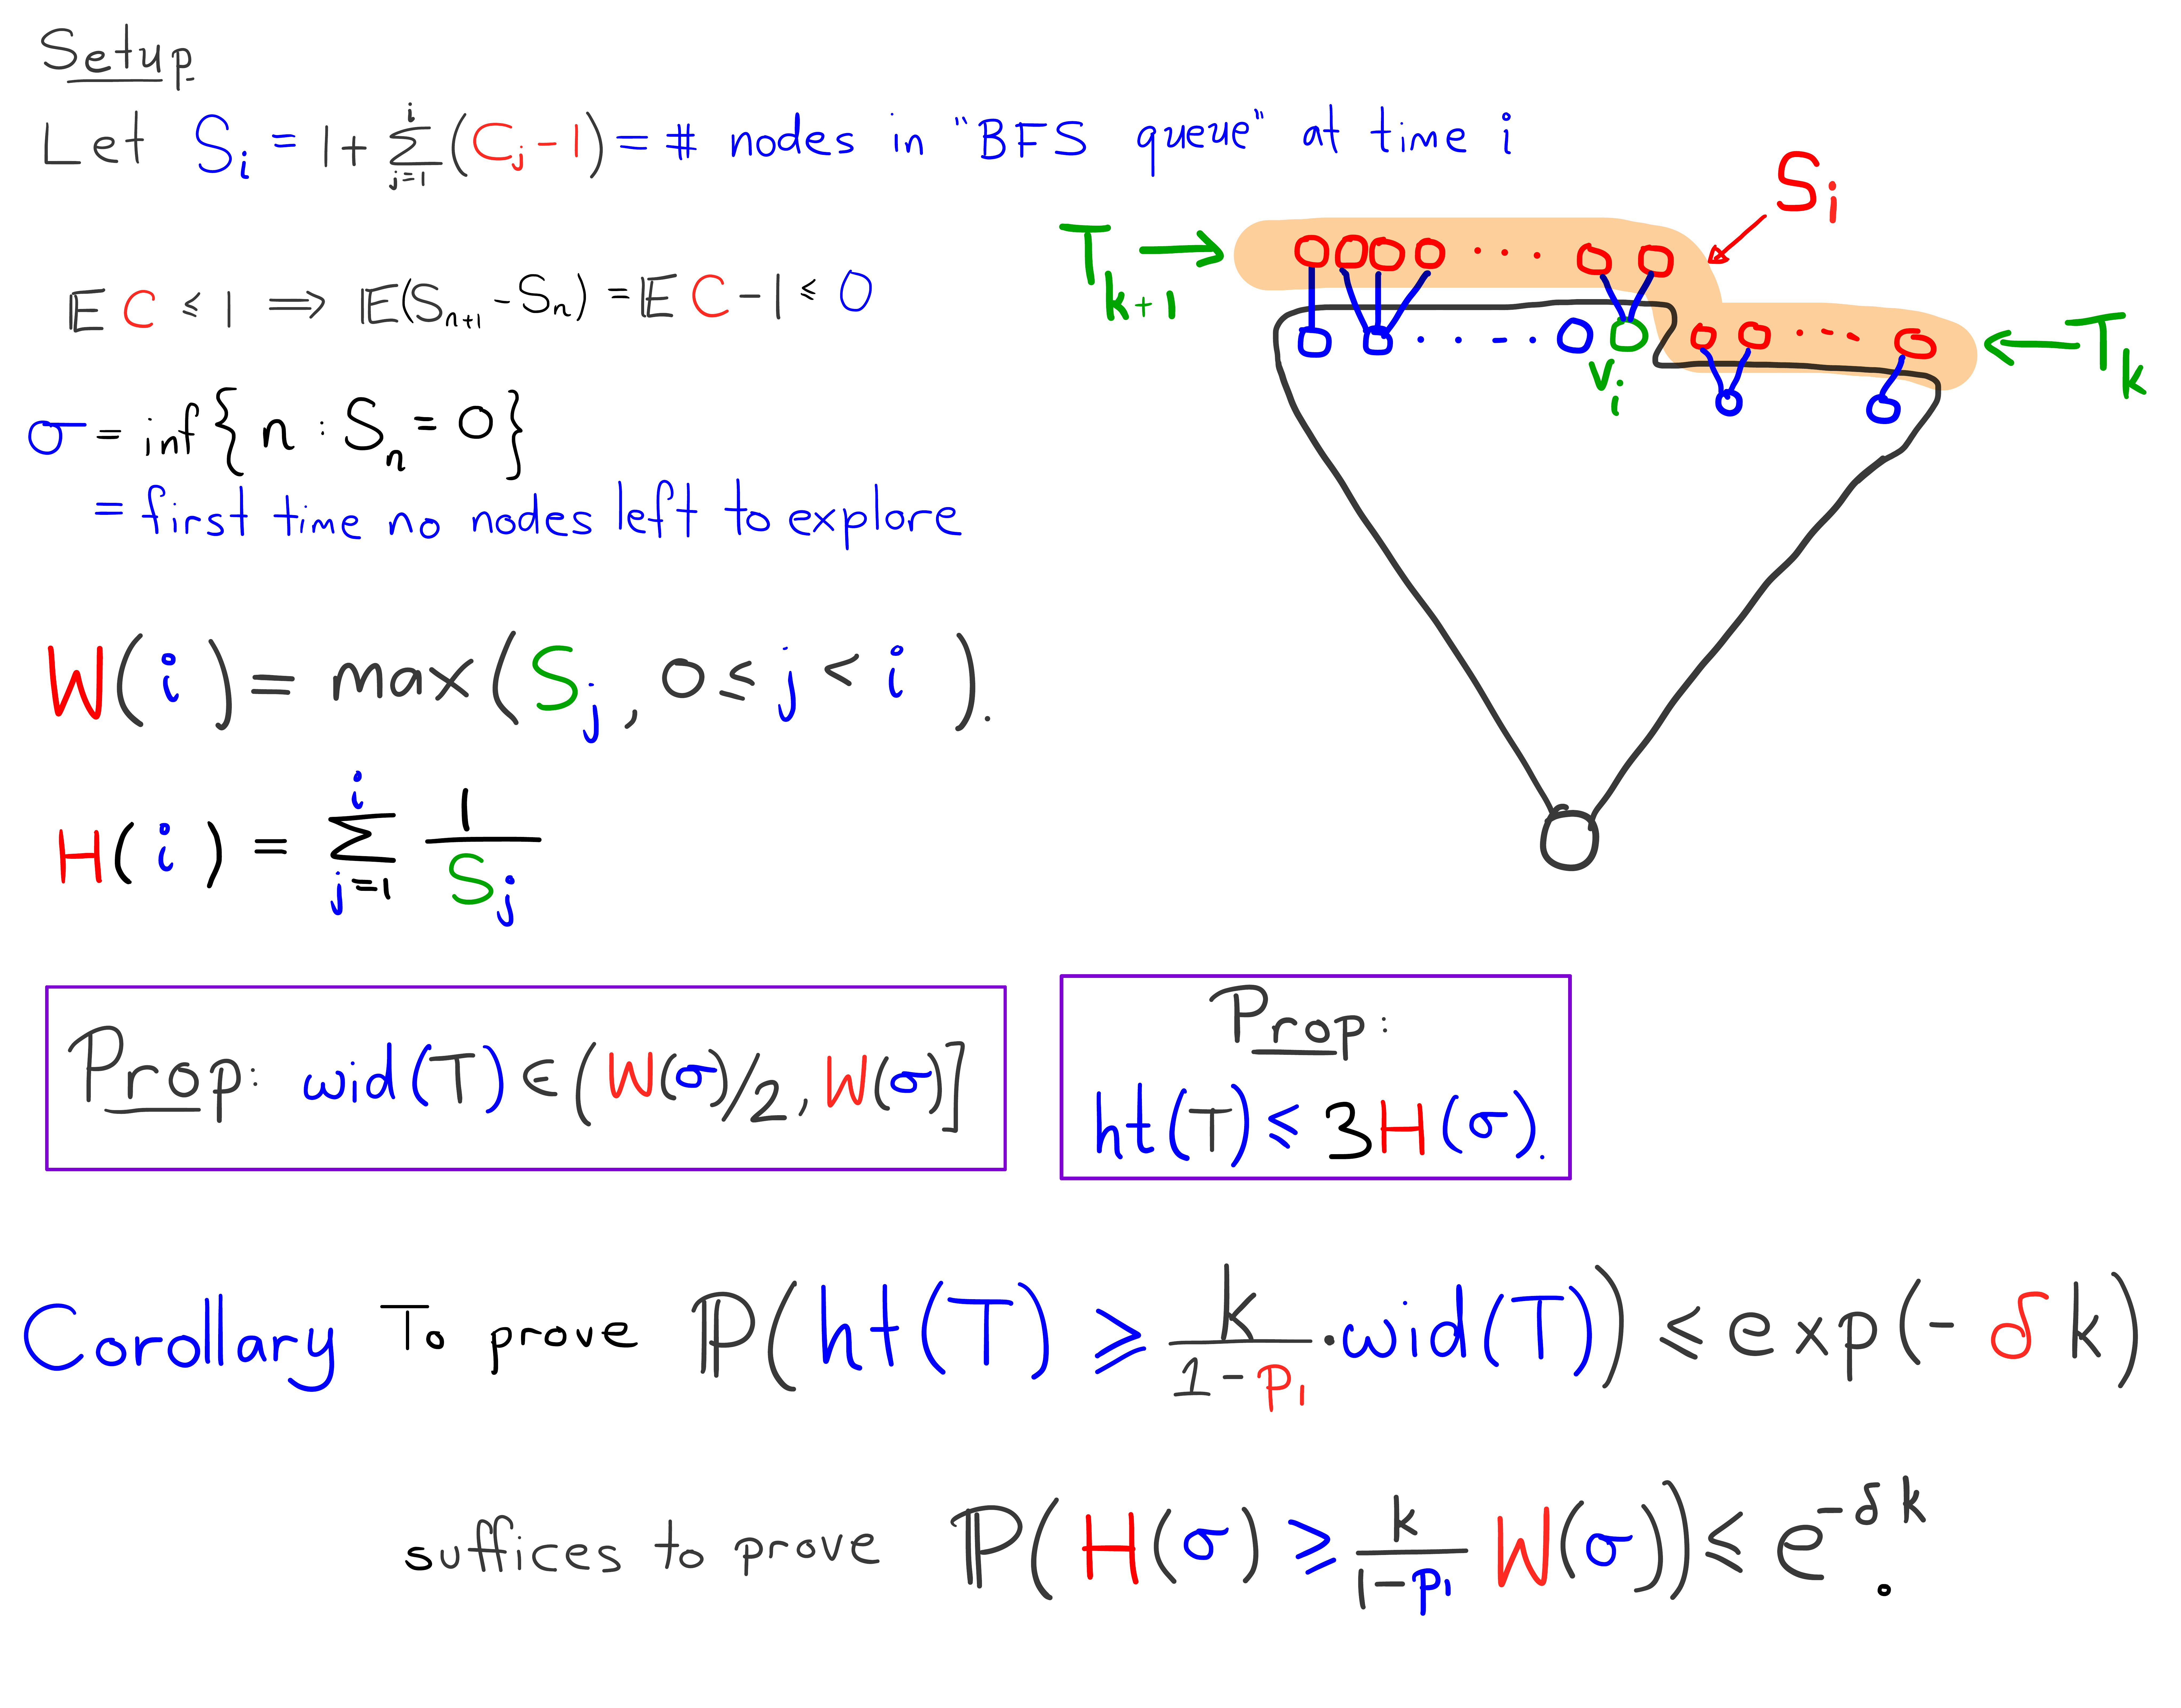 Setup
Let S_i = 1 + \sum_{j=1}^{i} (C_j - 1) = # nodes in "BFS queue" at time i
S_i
T_{k+1} →
𝔼 C ≤ 1 ⟹ 𝔼(S_{n+1} - S_n) = 𝔼 C - 1 ≤ 0
v_i
← T_k
σ = inf{ n : S_n = 0 }
= first time no nodes left to explore
W(i) = max( S_j , 0 ≤ j < i ).
H(i) = \sum_{j=1}^{i} \frac{1}{S_j}
Prop: wid(T) ∈ (W(σ)/2, W(σ)]
Prop:
ht(T) ≤ 3H(σ).
Corollary To prove ℙ( ht(T) ≥ \frac{k}{1-p_1} · wid(T) ) ≤ exp(- δ k)
suffices to prove ℙ( H(σ) ≥ \frac{k}{1-p_1} W(σ) ) ≤ e^{-δk}.